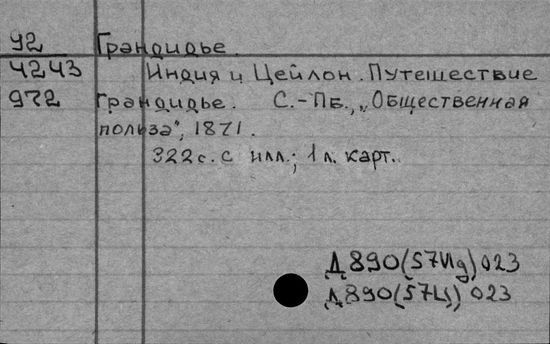 92 Грандидье.
4243 Индия и Цейлон. Путешествие
972 Грандидье. С.-Пб., „Общественная
польза", 1871.
322 с. с илл.; 1 л. карт.
Д 890(57Ид) 023
Д 890(57Ц) 023